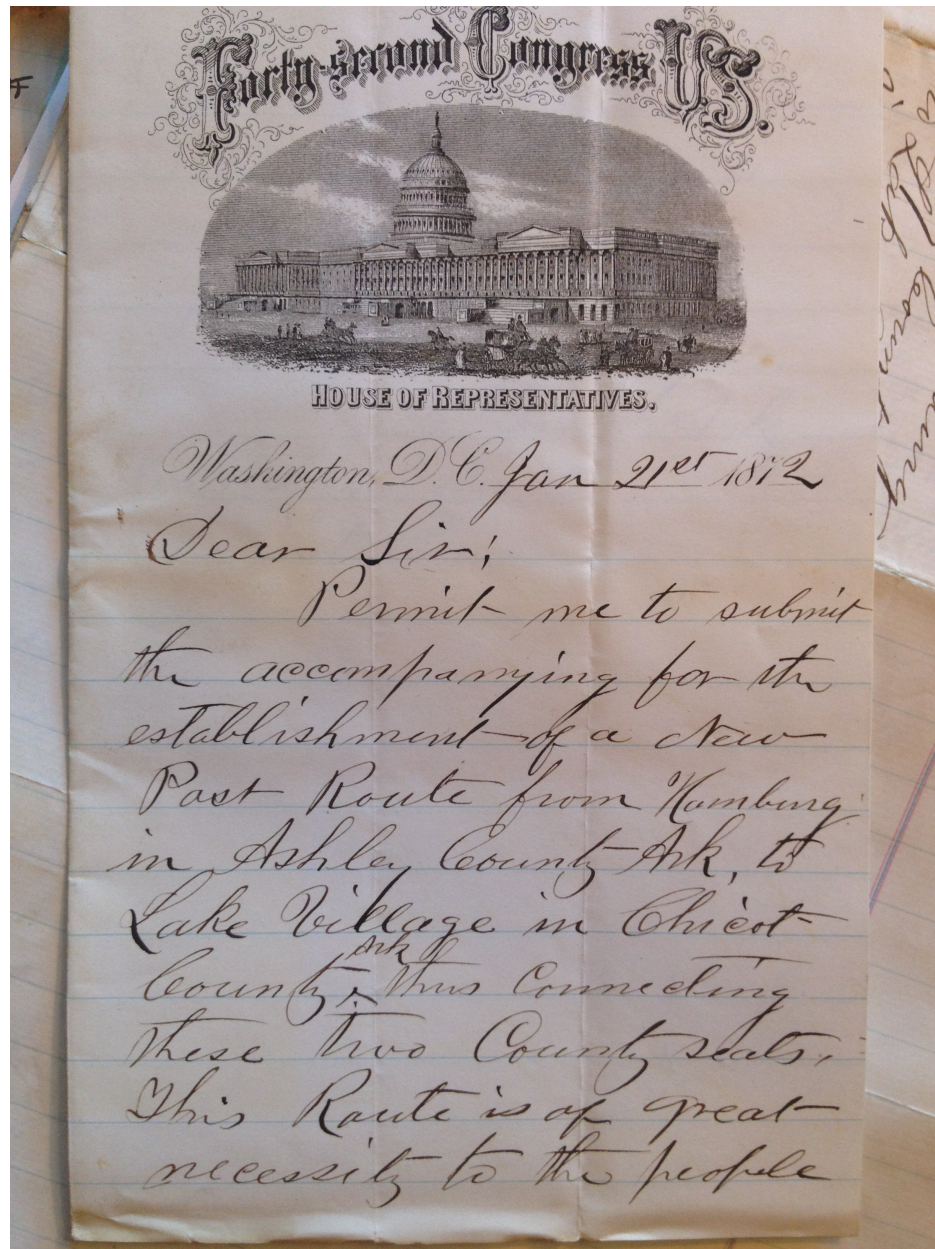 Forty-second Congress U.S.
HOUSE OF REPRESENTATIVES.
Washington, D.C. Jan 21st 1872
Dear Sir;
Permit me to submit
the accompanying for the
establishment of a New
Post Route from Hamburg
in Ashley County Ark, to
Lake Village in Chicot
Ark
County ^ thus Connecting
these two County seats.
This Route is of great
necessity to the people